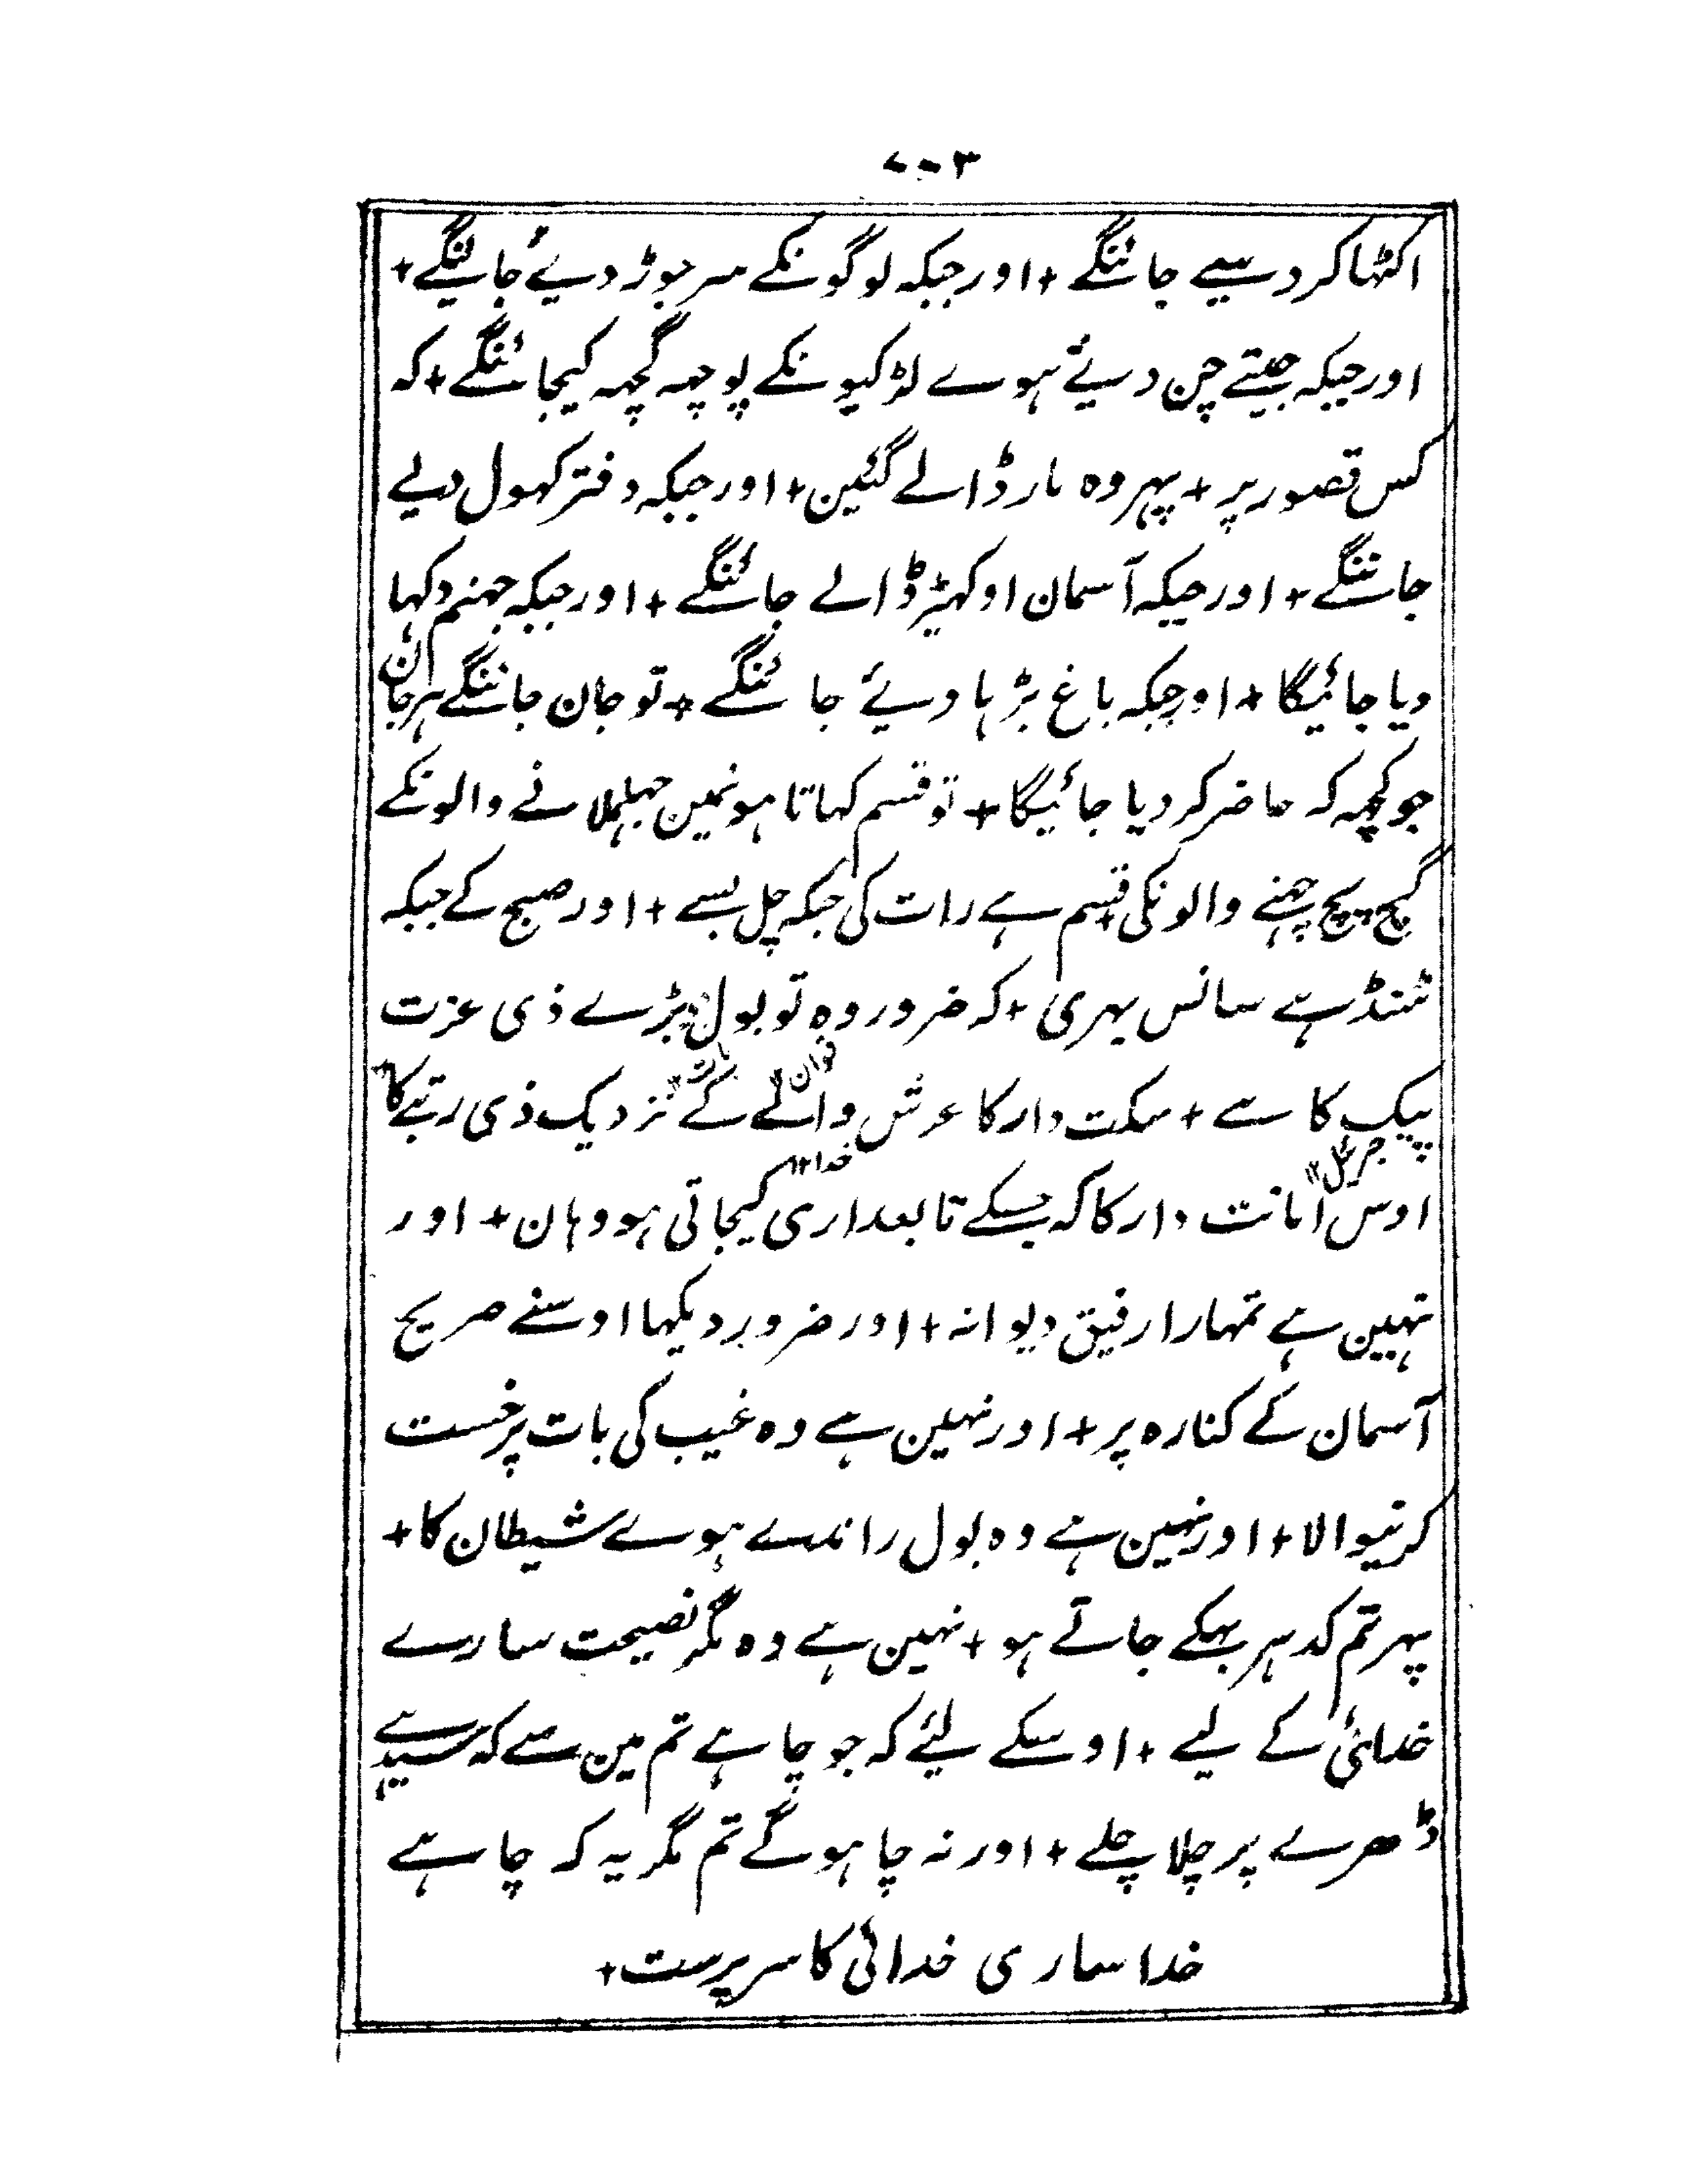 ۷۰۳
اکٹہا کر دسیے جائنگے + اور جبکہ لوگونکے سر جوڑ دیۓ جائینگے +
اور جبکہ جیتے چن دیۓ ہوے لڑکیونکے پوچہہ گچہہ کیجائنگے + کہ
کس قصور پر + پہر وہ مار ڈالے گئین + اور جبکہ دفتر کہول دیے
جائنگے + اور جبکہ آسمان اوکہیڑ ڈالے جائنگے + اور جبکہ جہنم دکہا
دیا جائیگا + اور جبکہ باغ بڑہا دیۓ جائنگے + تو جان جائنگے ہر جان
جو کچہہ کہ حاضر کر دیا جائیگا + تو قسم کہاتا ہونمین جہلملانے والونکے
گچ پچ چہنے والونکی + قسم ہے رات کی جبکہ چل بسے + اور صبح کے جبکہ
ٹہنڈہے سانس بہری + کہ ضرور وہ تو بول بڑے ذی عزت
قران ۱۲ بات ۱۲
پیک کا ہے + سکت دار کا عرش والے کے نزدیک ذی رتبے کا +
جبرئیل ۱۲ خدا ۱۲
اوس امانت دار کا کہ جسکے تابعداری کیجاتی ہو وہان + اور
نہین ہے تمہارا رفیق دیوانہ + اور ضرور دیکہا اوسنے صریح
آسمان کے کنارہ پر + اور نہین ہے وہ غیب کی بات پر خست
کرنیوالا + اور نہین ہے وہ بول راندے ہوے شیطان کا +
پہر تم کدہر بہکے جاتے ہو + نہین ہے وہ مگر نصیحت سارے
خدائی کے لیے + اوسکے لیۓ کہ جو چاہے تم مین سے کہ سیدہے
ڈھرے پر چلا چلے + اور نہ چاہوگے تم مگر یہ کہ چاہے
خدا ساری خدائی کا سرپرست +